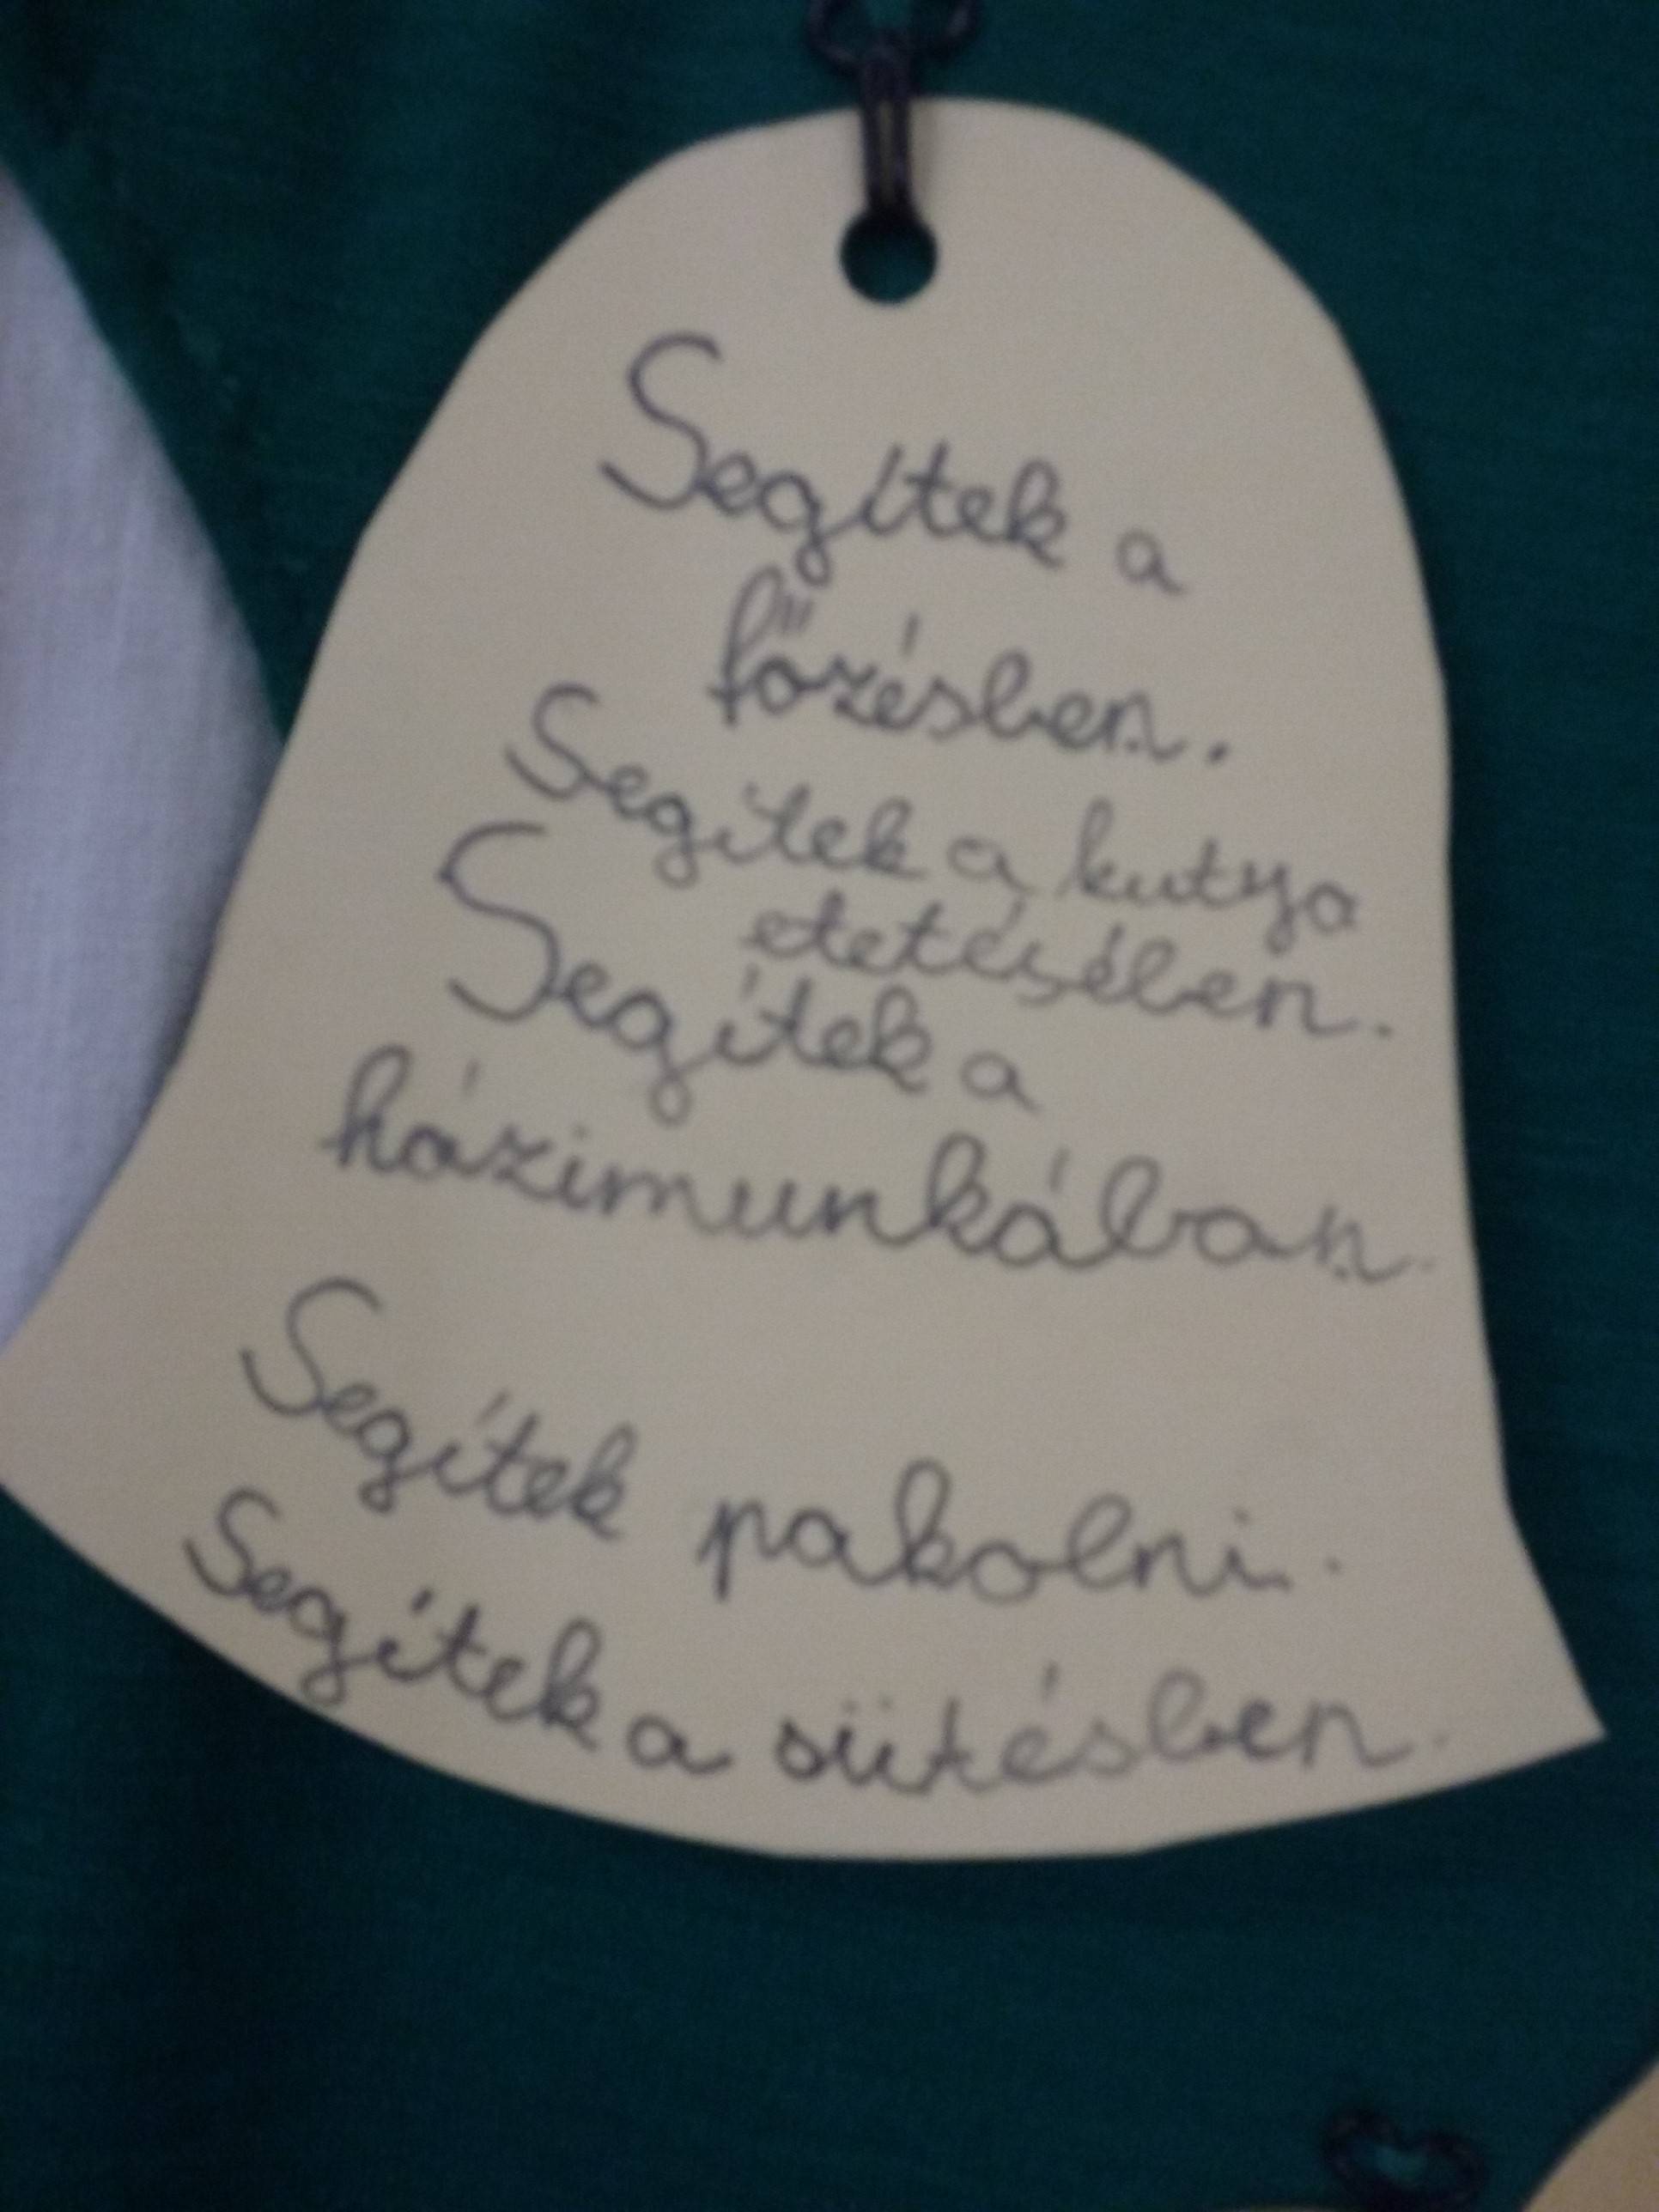 Segítek a
főzésben.
Segítek a kutya
etetésében.
Segítek a
házimunkában.
Segítek pakolni.
Segítek a sütésben.